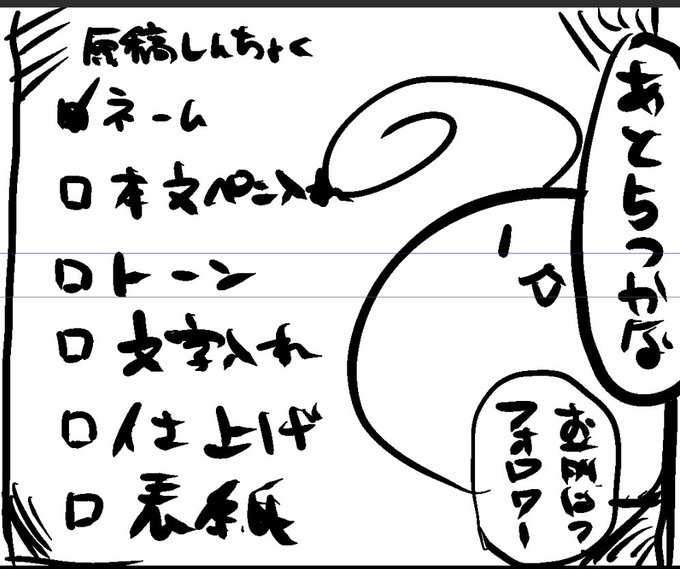 原稿しんちょく
ネーム
本文ペン入れ
トーン
文字入れ
仕上げ
表紙
あと5つかな
フォロワー